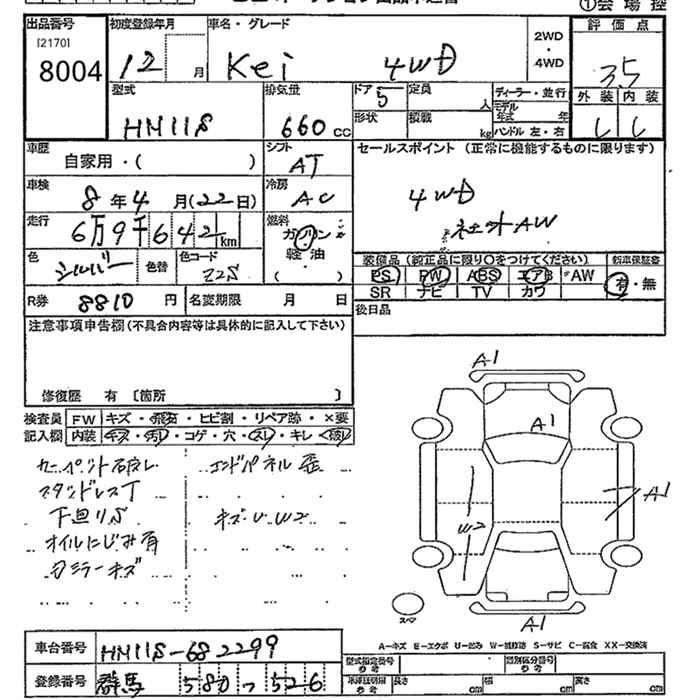 ①会場控
出品番号 [2170] 8004
初度登録年月 12 月
車名・グレード Kei 4WD
2WD ・ 4WD
評価点 3.5
外装 内装
型式 HN11S
排気量 660 CC
ドア 5
定員 人
形状
積載 kg
ディーラー・並行
モデル年式 年
ハンドル 左・右
車歴 自家用・( )
シフト AT
セールスポイント (正常に機能するものに限ります)
4WD
社外AW
車検 8年4月(22日)
冷房 AC
走行 6万9千642km
燃料 ガソリン 軽油 ( )
色 シルバー
色替
色コード Z2S
装備品 (純正品に限り○をつけてください)
新車保証書
PS PW ABS エアB AW
SR ナビ TV カワ
有・無
R券 8810 円
名変期限 月 日
後日品
注意事項申告欄(不具合内容等は具体的に記入して下さい)
修復歴 有 〔箇所 〕
検査員記入欄
FW キズ・飛石・ヒビ割・リペア跡・×要
内装 キズ・汚れ・コゲ・穴・スレ・キレ・破れ
スタッドレスT
下廻りS
オイルにじみ有
ミラーキズ
エンドパネル歪
キズ・U W2
A1
A1
A1
W2
スペア
A1
A-キズ E-エクボ U-凹み W-補修跡 S-サビ C-腐食 XX-交換済
車台番号 HN11S-682299
登録番号 群馬 580 526
型式指定番号 参考
類別区分番号 参考
長さ cm 幅 cm 高さ cm